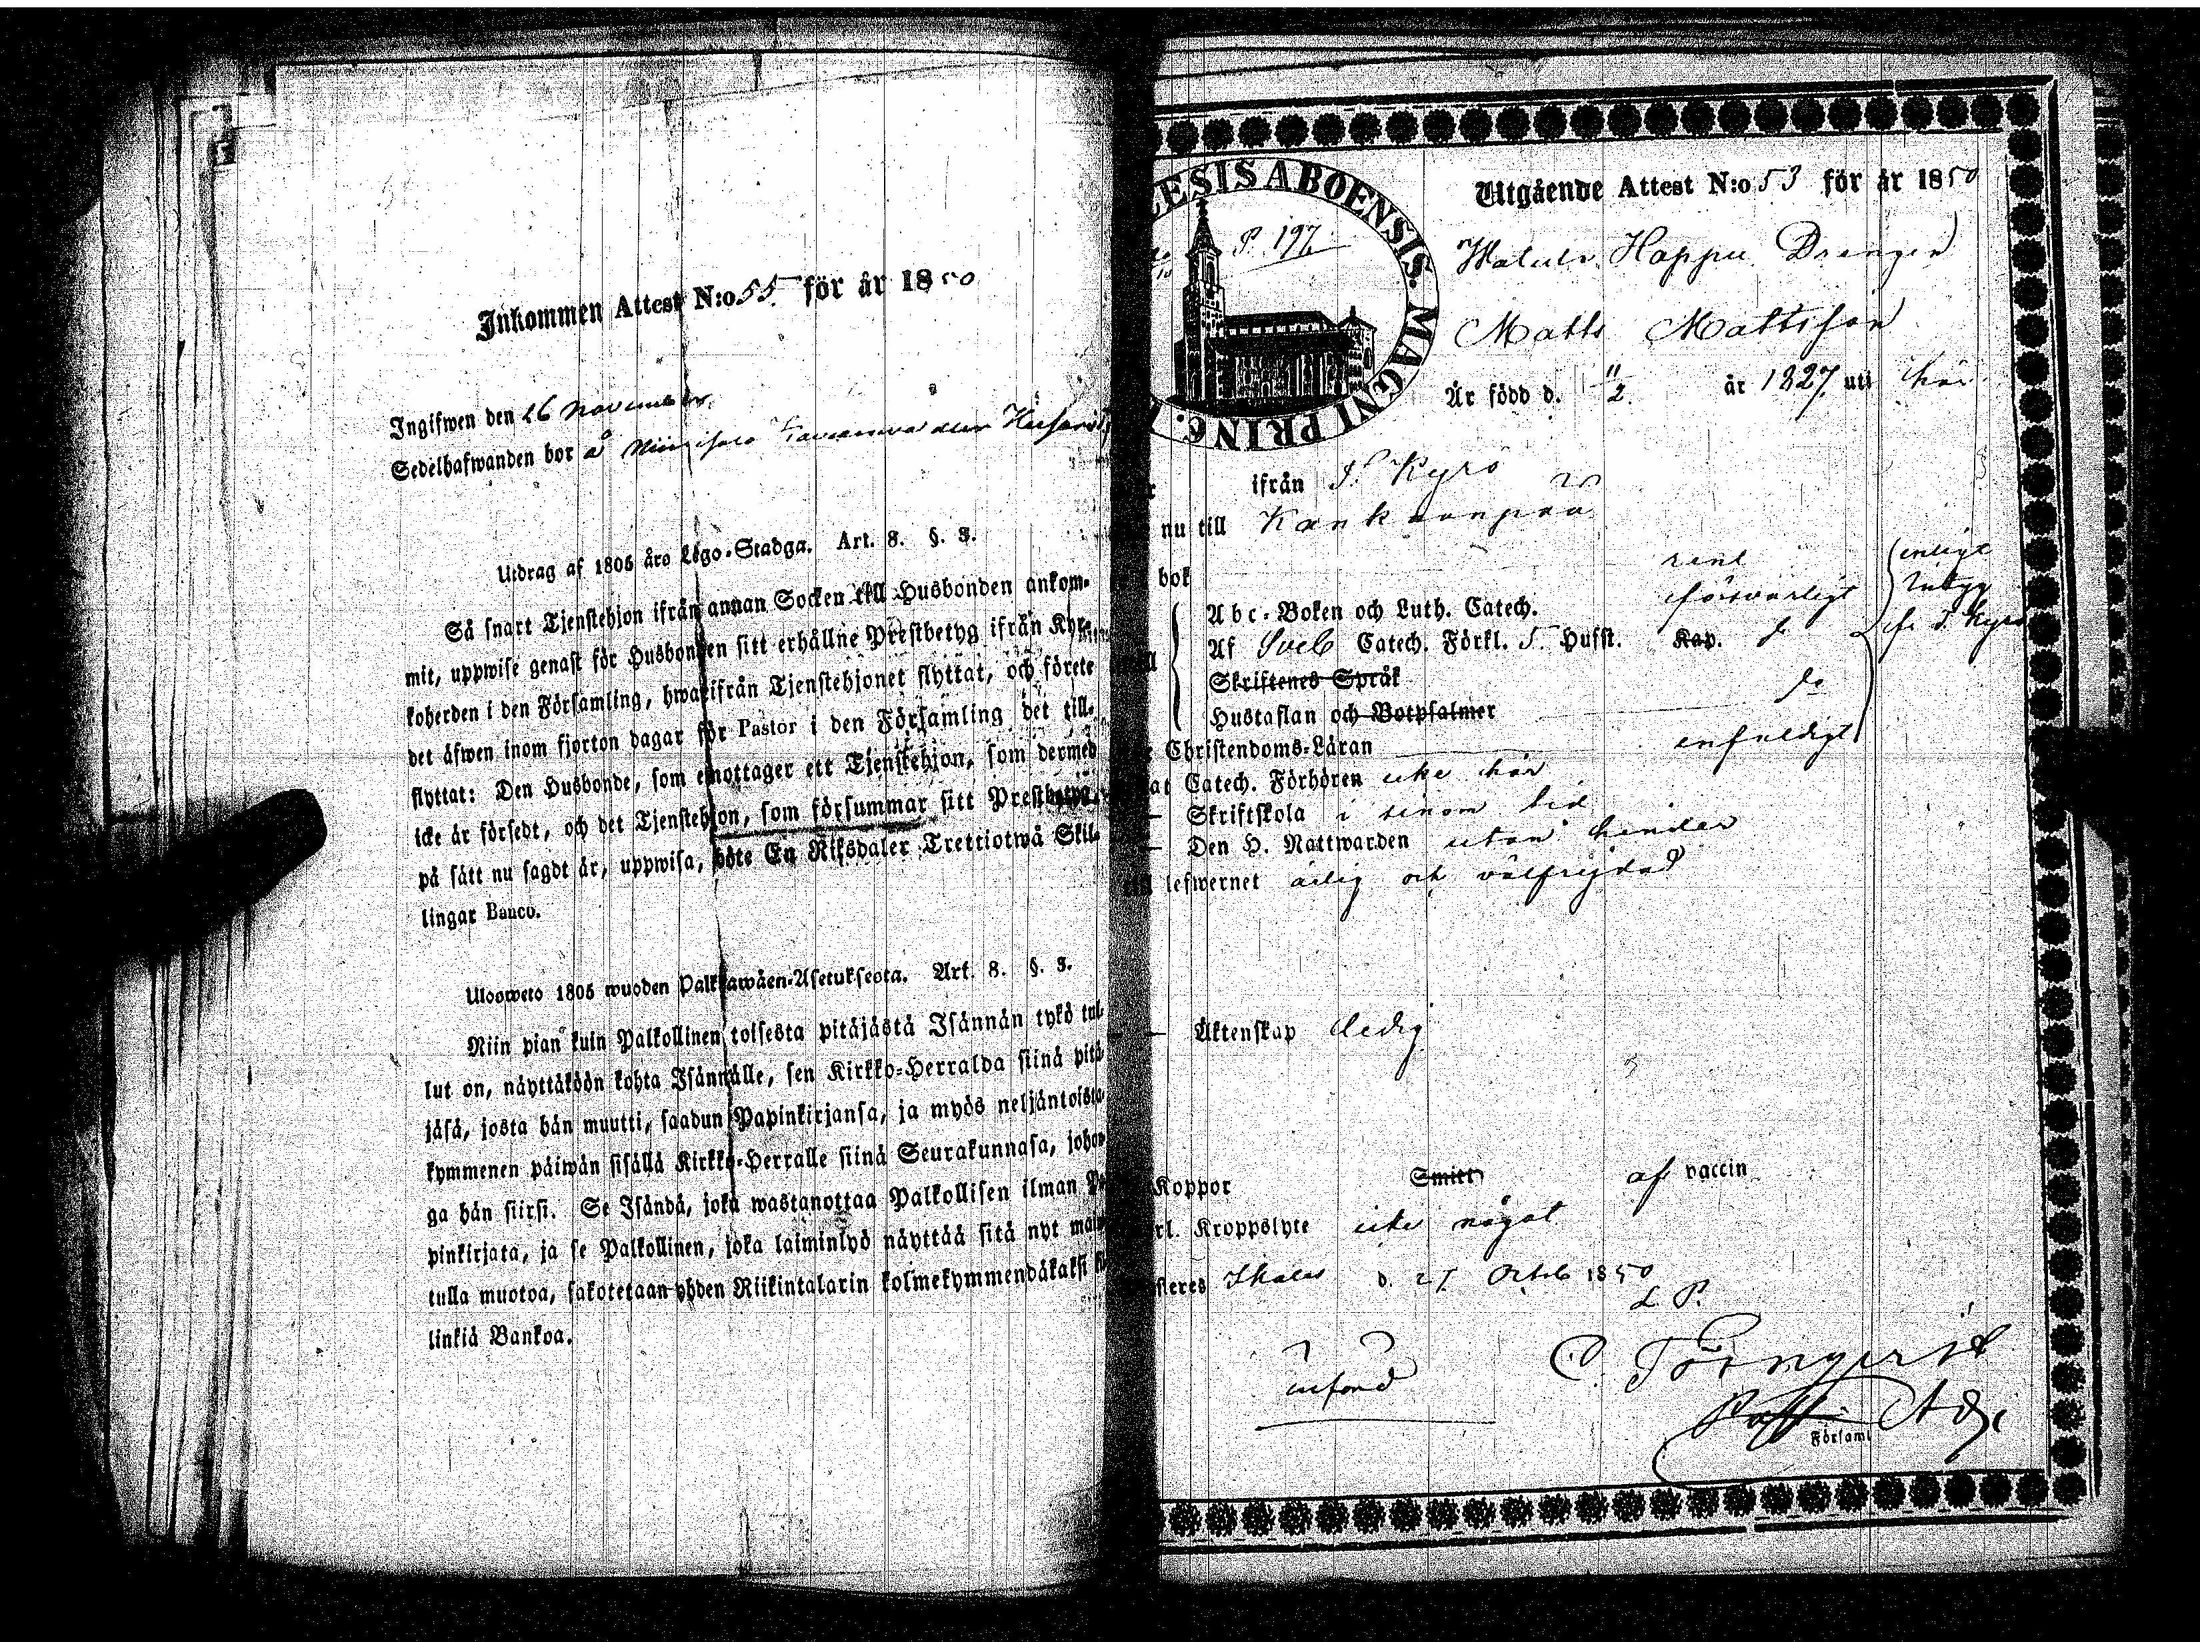 Inkommen Attest N:o 55 för år 1850
Ingifwen den 26 November
Sedelhafwanden bor å
Utdrag af 1805 års Lego-Stadga. Art. 8. §. 3.
Så snart Tjenstehjon ifrån annan Socken till Husbonden ankom-
mit, uppwise genast för Husbonden sitt erhållne Prestbetyg ifrån Kyr-
koherden i den Församling, hwarifrån Tjenstehjonet flyttat, och förete
det äfwen inom fjorton dagar för Pastor i den Församling det till-
flyttat: Den Husbonde, som emottager ett Tjenstehjon, som dermed
icke är försedt, och det Tjenstehjon, som försummar sitt Prestbetyg,
på sätt nu sagdt är, uppwisa, böte En Riksdaler Trettiotwå Skil-
lingar Banco.
Ulosweto 1805 wuoden Palkkawäen-Asetuksesta. Art. 8. §. 3.
Niin pian kuin Palkollinen toisesta pitäjästä Isännän tykö tul-
lut on, näyttäköön kohta Isännälle, sen Kirkko-Herralda siinä pitä-
jäsä, josta hän muutti, saadun Papinkirjansa, ja myös neljäntoista
kymmenen päiwän sisällä Kirkko-Herralle siinä Seurakunnasa, johon-
ga hän siirsi. Se Isändä, joka wastanottaa Palkollisen ilman Pa-
pinkirjata, ja se Palkollinen, joka laiminlyö näyttää sitä nyt mai-
tulla muotoa, sakotetaan yhden Riikintalarin kolmekymmendäkaksi
linkiä Bankoa.
ESIS ABOENSIS. MAGNI PRINC.
P. 197
Utgående Attest N:o 53 för år 1850
Happu Drengen
Matts Mattsson
Är född d. 11/2 år 1827 uti här
ifrån I. Kyrö
nu till Kankaanpää
bok rent
Abc-Boken och Luth. Catech. försvarligt
Af Sveb Catech. Förkl. 5 Husst. Kap. do
Skriftenes Språk
Hustaflan och Botpsalmer do
enligt
betyg
fr. I. Kyrö
Christendoms-Läran enfaldigt
Catech. Förhören icke här
Skriftskola i sinom tid
Den H. Nattwarden utan hinder
lefwernet ärlig och välfrejdad
Äktenskap ledig
Koppor Smitt af vaccin
Kroppslyte icke något
Ikalis d. 25 Octob 1850
L. P.
C. Törnqvist
Past. Adj.
Församl